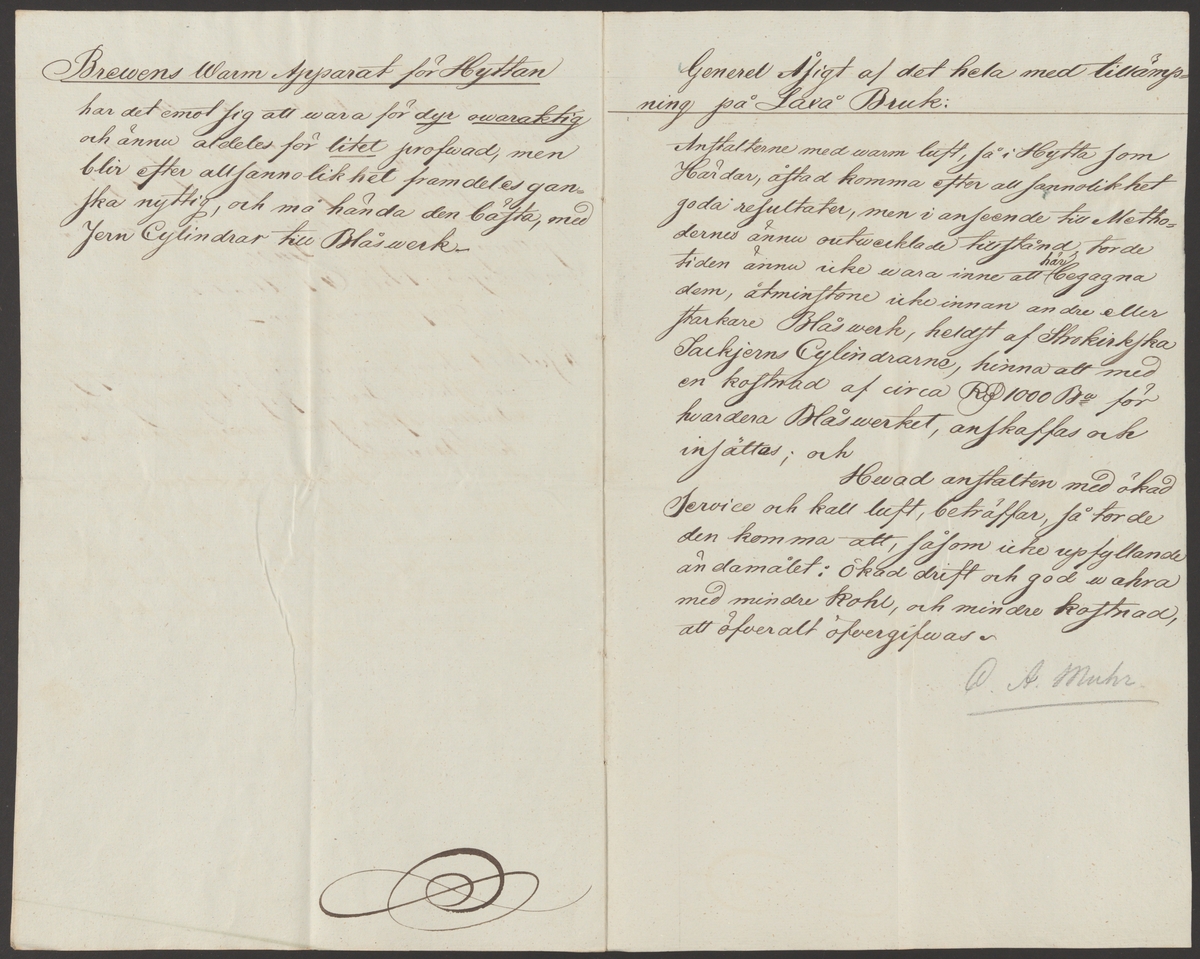 Brewens Warm Apparat för Hyttan
har det emot sig att wara för dyr owaraktig
och ännu aldeles för litet profwad, men
blir efter all sannolikhet framdeles gan-
ska nyttig, och må hända den bästa, med
Jern Cylindrar till Blåswerk
Generel Åsigt af det hela med tillämp-
ning på Låvå Bruk:
Anstalterne med warm luft, så i Hytta som
Härdar, åstad komma efter all sannolikhet
goda resultater, men i anseende till Metho-
dernes ännu outwecklade tillstånd, torde
tiden ännu icke wara inne att här begagna
dem, åtminstone icke innan andre eller
starkare Blåswerk, heldst af Strokirkska
Tackjerns Cylindrarne, hinna att med
en kostnad af circa Rd 1000 Bco för
hvardera Blåswerket, anskaffas och
insättas; och
Hwad anstalten med ökad
Service och kall luft, beträffar, så torde
den komma att, såsom icke upfyllande
ändamålet: ökad drift och god wahra
med mindre kohl, och mindre kostnad,
att öfveralt öfvergifwas
O. A. Muhr